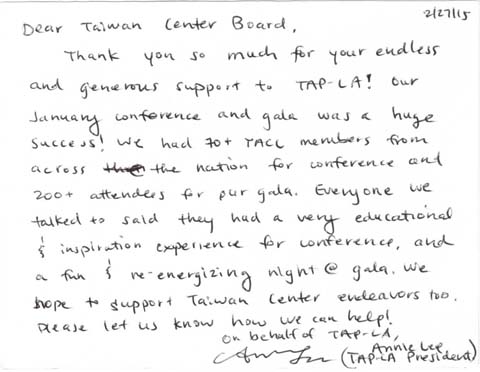 2/27/15
Dear Taiwan Center Board,
Thank you so much for your endless
and generous support to TAP-LA! Our
January conference and gala was a huge
success! We had 70+ TACL members from
across the the nation for conference and
200+ attenders for our gala. Everyone we
talked to said they had a very educational
& inspiration experience for conference, and
a fun & re-energizing night @ gala. We
hope to support Taiwan Center endeavors too.
Please let us know how we can help!
On behalf of TAP-LA,
Annie Lee
(TAP-LA President)